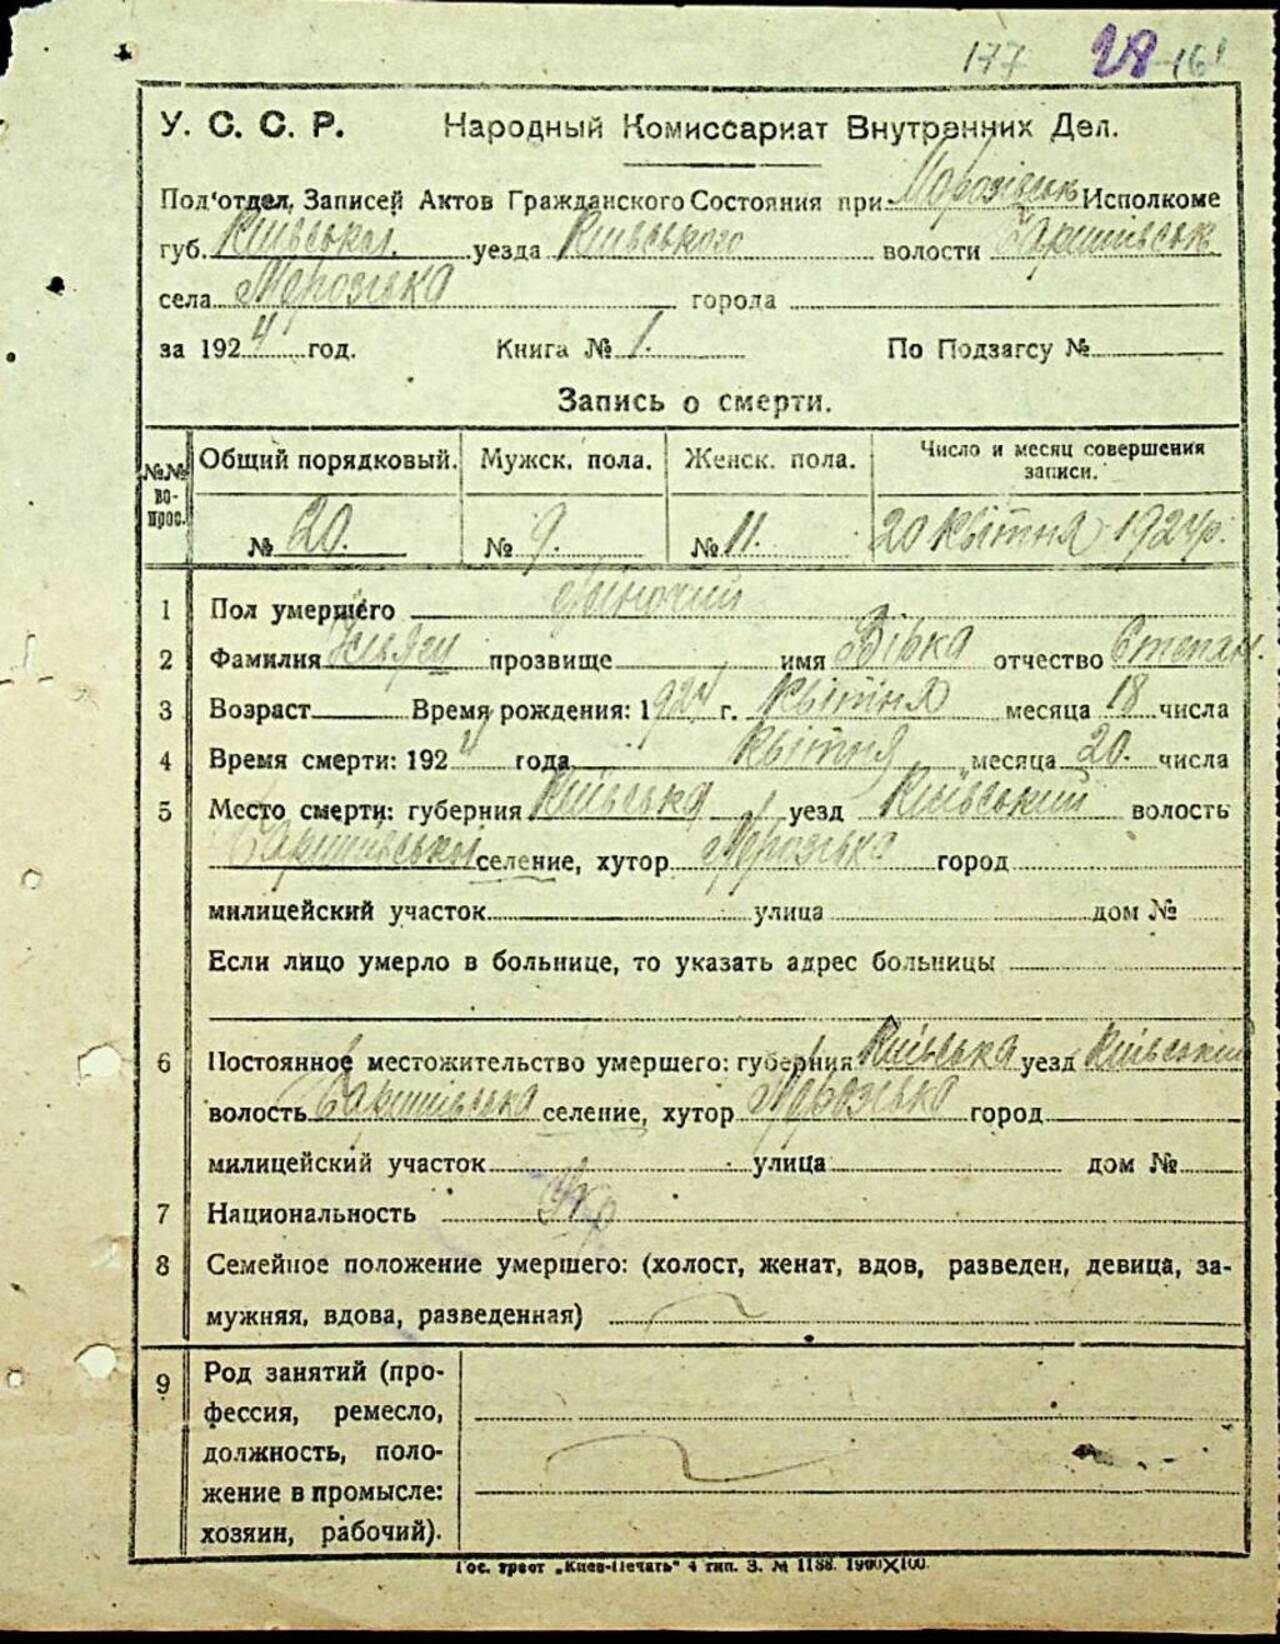 177 28 161
У. С. С. Р. Народный Комиссариат Внутренних Дел.
Под'отдел, Записей Актов Гражданского Состояния при Морозівськ Исполкоме
губ. Київської уезда Київського волости
села Морозівка города
за 1924 год. Книга № 1. По Подзагсу №
Запись о смерти.
№№ вопрос. Общий порядковый. Мужск. пола. Женск. пола. Число и месяц совершения записи.
№ 20. № 9. № 11. 20 квітня 1924 р.
1 Пол умершего жіночий
2 Фамилия прозвище имя Вірка отчество Степан.
3 Возраст Время рождения: 1924 г. квітня месяца 18 числа
4 Время смерти: 1924 года квітня месяца 20. числа
5 Место смерти: губерния Київська уезд Київський волость
селение, хутор Морозівка город
милицейский участок улица дом №
Если лицо умерло в больнице, то указать адрес больницы
6 Постоянное местожительство умершего: губерния Київська уезд Київський
волость селение, хутор Морозівка город
милицейский участок улица дом №
7 Национальность Укр
8 Семейное положение умершего: (холост, женат, вдов, разведен, девица, за-
мужняя, вдова, разведенная)
9 Род занятий (про-
фессия, ремесло,
должность, поло-
жение в промысле:
хозяин, рабочий).
Гос. трест „Киев-Печать" 4 тип. З. № 1188. 1900×100.